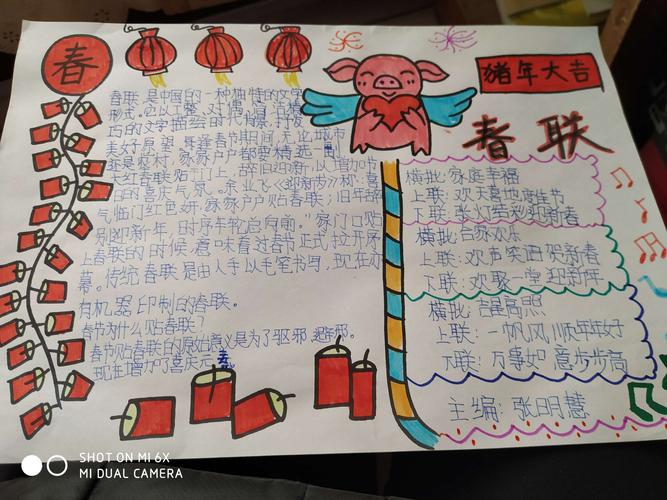 春
猪年大吉
春联
春联是中国的一种独特的文字
形式。它以工整、对偶、简洁精
巧的文字描绘时代背景,抒发
美好愿望。每逢春节期间,无论城市
还是农村,家家户户都要精选一副
大红春联贴门上,辞旧迎新,以增加节
日的喜庆气氛。余亚飞《迎新春》称:喜
气临门红色妍,家家户户贴春联;旧年辞
别迎新年,时序车轮总向前。”家门口贴
上春联的时候,意味着过春节正式拉开序
幕。传统春联是由人手以毛笔书写,现在亦
有机器印制的春联。
春节为什么贴春联?
春节贴春联的原始意义是为了驱邪避邪。
现在增加了喜庆元素
横批:家庭幸福
上联:欢天喜地度佳节
下联:张灯结彩迎新春
横批:合家欢乐
上联:欢声笑语贺新春
下联:欢聚一堂迎新年
横批:吉星高照
上联:一帆风顺年年好
下联:万事如意步步高
主编:张明慧
SHOT ON MI 6X
MI DUAL CAMERA